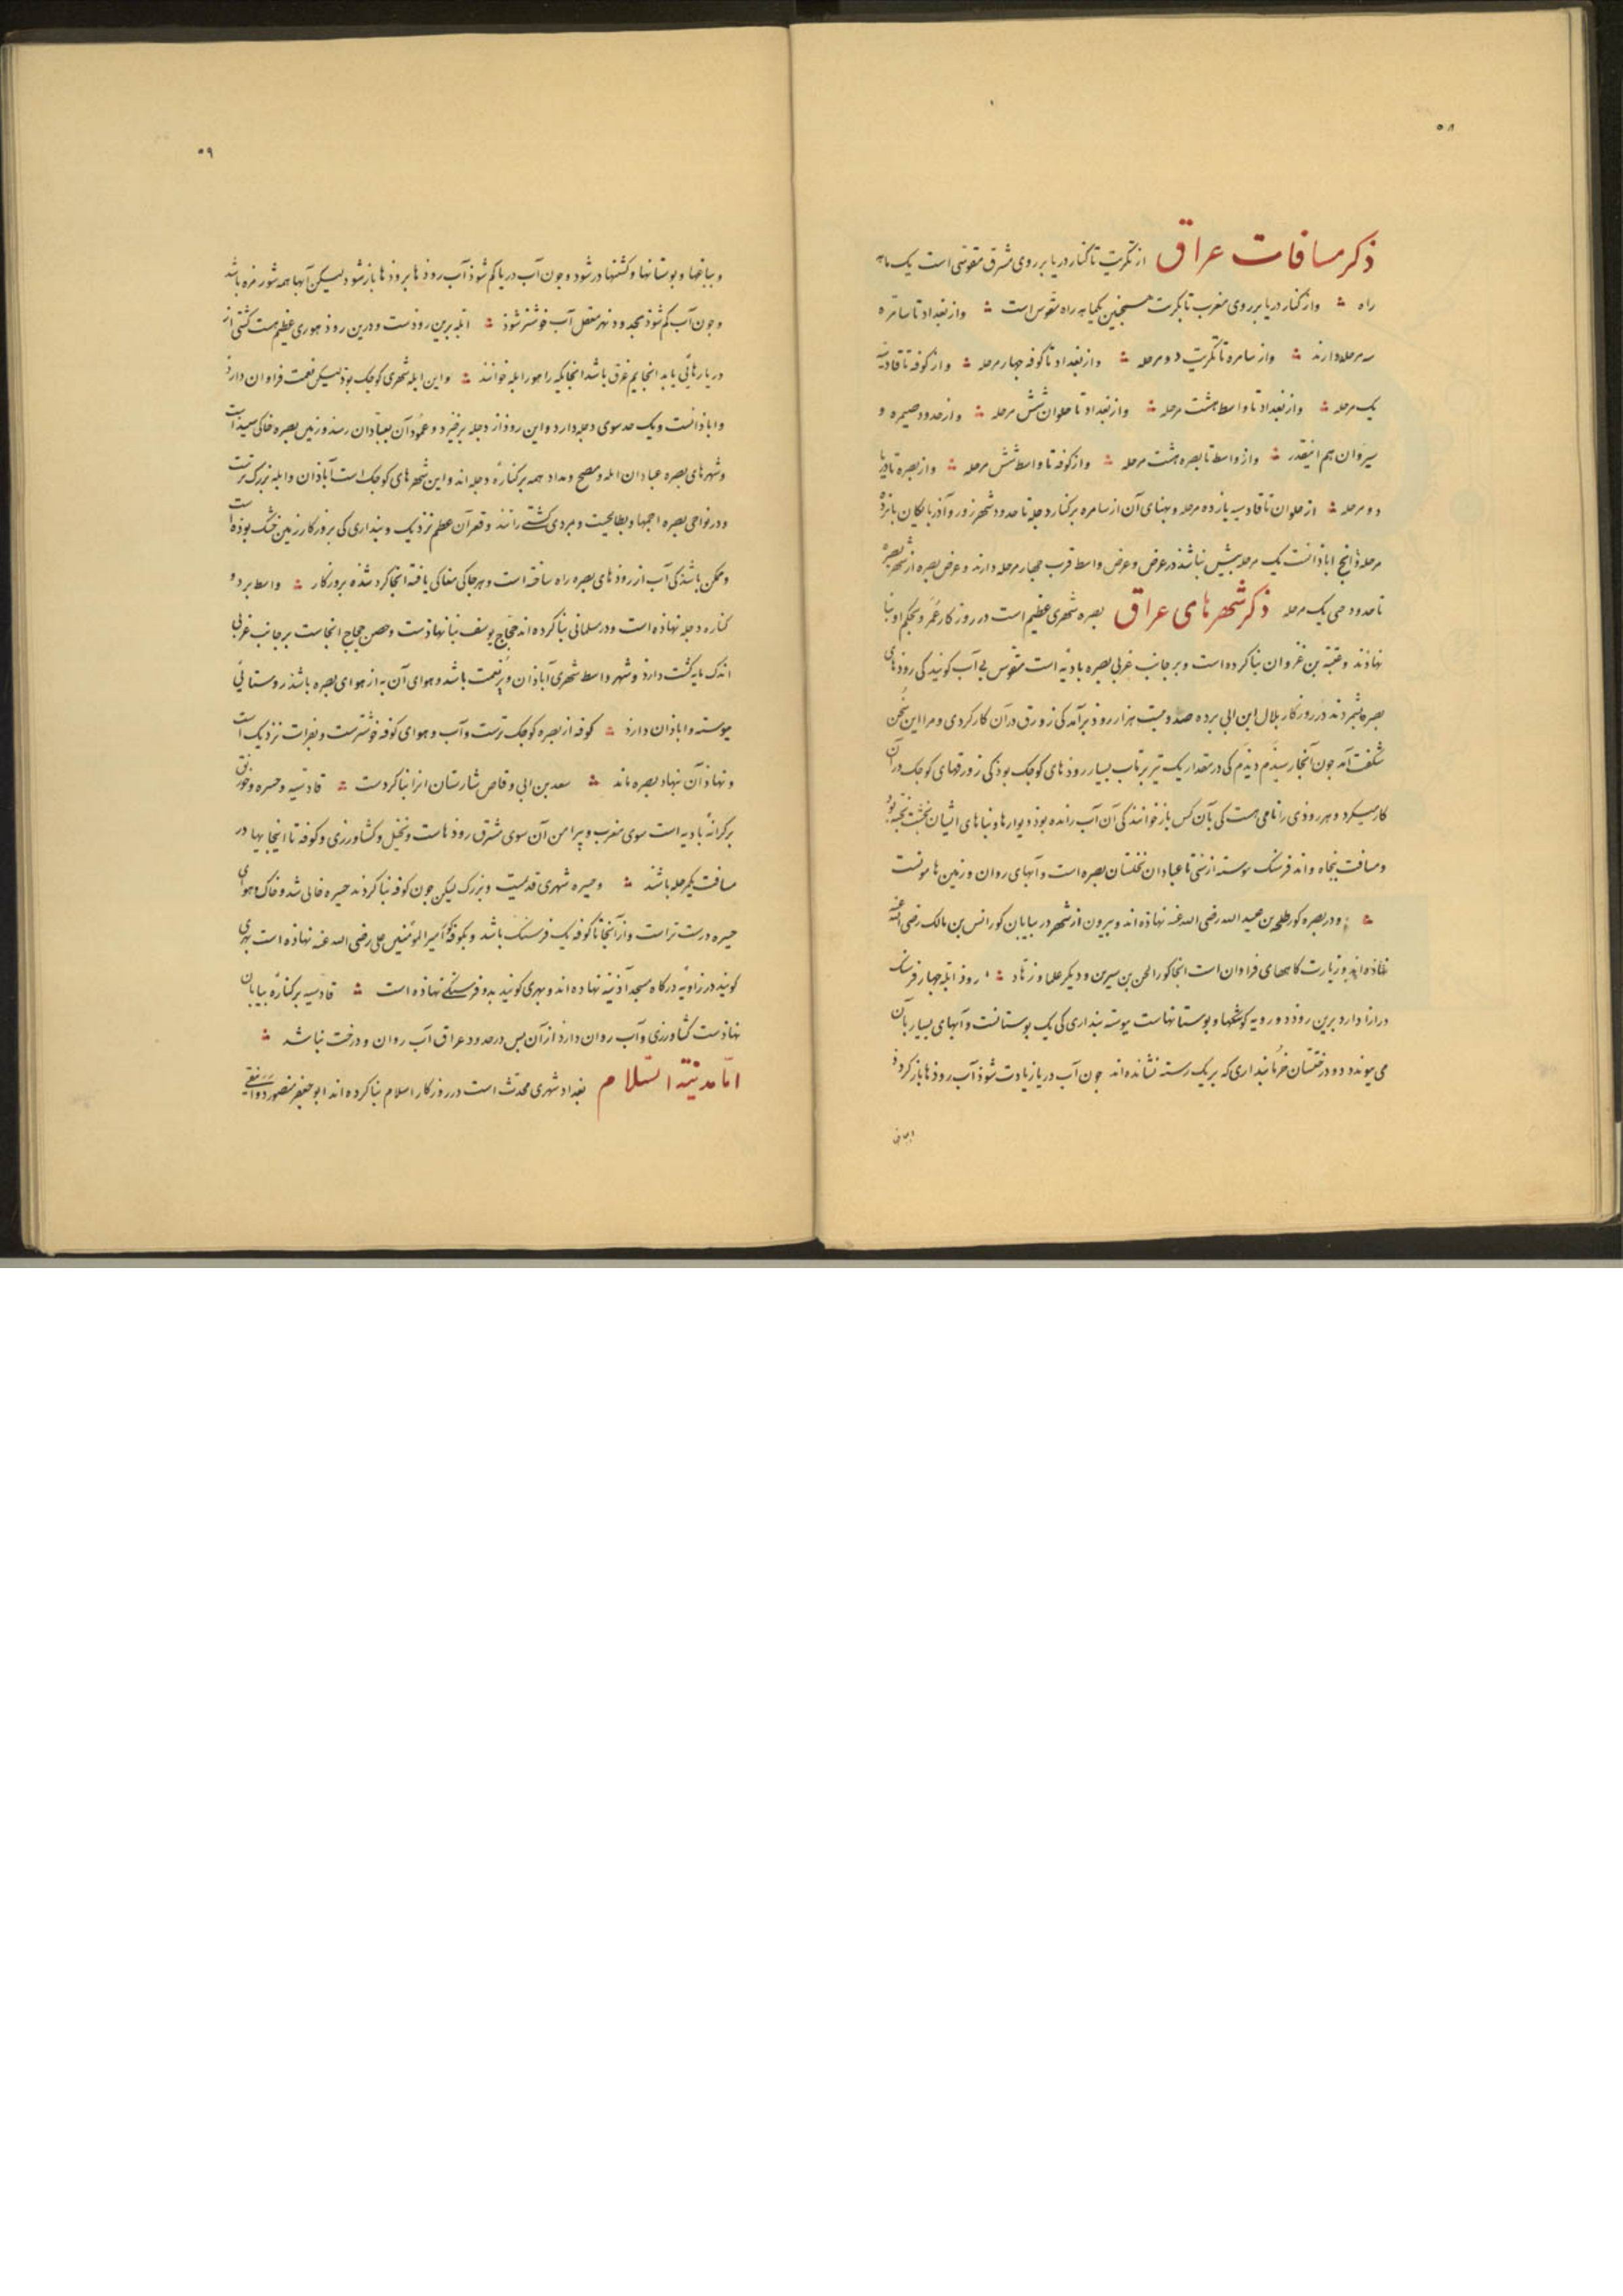 ۵۸
ذکر مسافات عراق از تکریت تا کنار دریا بر روی مشرق مقوسی است یک ماهه
راه ؞ و از کنار دریا بر روی مغرب تا تکریت همچنین یکماهه راه مقوس است ؞ و از بغداد تا سامره
سه مرحله دارند ؞ و از سامره تا تکریت دو مرحله ؞ و از بغداد تا کوفه چهار مرحله ؞ و از کوفه تا قادسیه
یک مرحله ؞ و از بغداد تا واسط هشت مرحله ؞ و از بغداد تا حلوان شش مرحله ؞ و از حدود صیمره و
سیروان هم اینقدر ؞ و از واسط تا بصره هشت مرحله ؞ و از کوفه تا واسط شش مرحله ؞ و از بصره تا دریا
دو مرحله ؞ از حلوان تا قادسیه یازده مرحله و پهنای آن از سامره بر کنار دجله تا حدود شهرزور و آذربایکان پانزده
مرحله و آنچ اباذانست یک مرحله بیش نباشد در عرض و عرض واسط قرب چهار مرحله دارند و عرض بصره از شهر بصره
تا حدود جی یک مرحله ذکر شهرهای عراق بصره شهری عظیم است در روزکار عمر و بحکم او بنا
نهاذند و عتبه بن غزوان بنا کرده است و بر جانب غربی بصره بادیه است مقوس بی آب کویند کی روذهای
بصره بشمردند در روزکار بلال ابن ابی برده صد و بیست هزار روذ برآمد کی زورق در آن کار کردی و مرا این سخن
شکفت آمد چون آنجا رسیذم دیذم کی در مقدار یک تیر پرتاب بسیار روذهای کوچک بوذ کی زورقهای کوچک در آن
کار میکرد و هر روذی را نامی هست کی بآن کس باز خوانند کی آن آب رانده بوذ و دیوارها و بناهای ایشان بخشت پخته بوذ
و مسافت پنجاه و اند فرسنک پیوسته از تا عبادان نخلستان بصره است و آبهای روان و زمین ها
؞ و در بصره کور طلحه بن عبید الله رضی الله عنه نهاذه اند و بیرون از شهر در بیابان کور انس بن مالک رضی الله عنه
نهاذه اند و زیارت کاههای فراوان است آنجا کور الحسن بن سیرین و دیکر علما و زهاد ؞ روذ ابله چهار فرسنک
درازا دارد برین روذ دو رویه کوشکها و بوستانهاست پیوسته پنداری کی یک بوستانست و آبهای بسیار بآن
می پیوندد و درختستان خرما پنداری که بر یک رسته نشانده اند چون آب دریا زیادت شوذ آب روذها باز کردد
۵۹
و بباغها و بوستانها و کشتها در شود و چون آب دریا کم شوذ آب روذها بروذها باز شود لیکن آبها همه شور مزه باشد
و چون آب کم شوذ بحدود نهر معقل آب خوشتر شوذ ؞ ابله برین روذست و درین روذ هوری عظیم هست کشتی از
دریا رهائی یابد اینجا بیم غرق باشد آنجایکه را هور ابله خوانند ؞ و این ابله شهری کوچک بوذ لیکن نعمت فراوان دارذ
و اباذانست و یک حد سوی دجله دارد و این روذ از دجله برخیزد و عمود آن بعبادان رسد و زمین بصره خاکی سپید است
و شهرهای بصره عبادان ابله و مصح و مداد همه بر کناره دجله اند و این شهرهای کوچک است آباذان و ابله بزرک ترست
و در نواحی بصره اجمها و بطایحست و بمردی کشتی رانند و قعر آن عظیم نزدیک و پنداری کی بروزکار زمین خشک بوذه است
و ممکن باشذ کی آب از روذهای بصره راه ساخته است و هر جا کی مغاکی یافته آنجا کرد شذه بروزکار ؞ واسط بر دو
کناره دجله نهاذه است و در مسلمانی بنا کرده اند حجاج یوسف بنا نهاذست و حصن حجاج آنجاست بر جانب غربی
اندک مایه کشت دارذ و شهر واسط شهری آباذان و پرنعمت باشد و هوای آن به از هوای بصره باشذ روستائی
پیوسته و اباذان دارذ ؞ کوفه از بصره کوچک ترست و آب و هوای کوفه خوشترست و بفرات نزدیک است
و نهاذ آن بنهاد بصره ماند ؞ سعد بن ابی وقاص شارستان آنرا بنا کردست ؞ قادسیه و حیره و خورنق
بر کرانهٔ بادیه است سوی مغرب و پیرامن آن سوی مشرق روذهاست و نخیل و کشاورزی و کوفه تا اینجایها در
مسافت یکمرحله باشند ؞ و حیره شهری قدیمست و بزرک لیکن چون کوفه بنا کردند حیره خالی شد و خاک و هوای
حیره درست تر است و از آنجا تا کوفه یک فرسنک باشد و بکوفه کور امیرالمومنین علی رضی الله عنه نهاذه است بهری
کویند در زاویه درکاه مسجد آذینه نهاده اند و بهری کویند بدو فرسنکی نهاذه است ؞ قادسیه بر کناره بیابان
نهاذست کشاورزی و آب روان دارد از آن پس در حدود عراق آب روان و درخت نباشد ؞
اما مدینة السلام بغداد شهری محدث است در روزکار اسلام بنا کرده اند ابو جعفر منصور دوانیقی